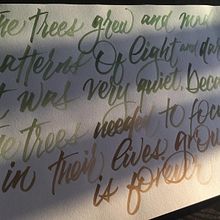 The trees grew and mad
atterns Of light and da
t was very quiet. Beca
he trees needed to foc
in their lives. grow
is forever